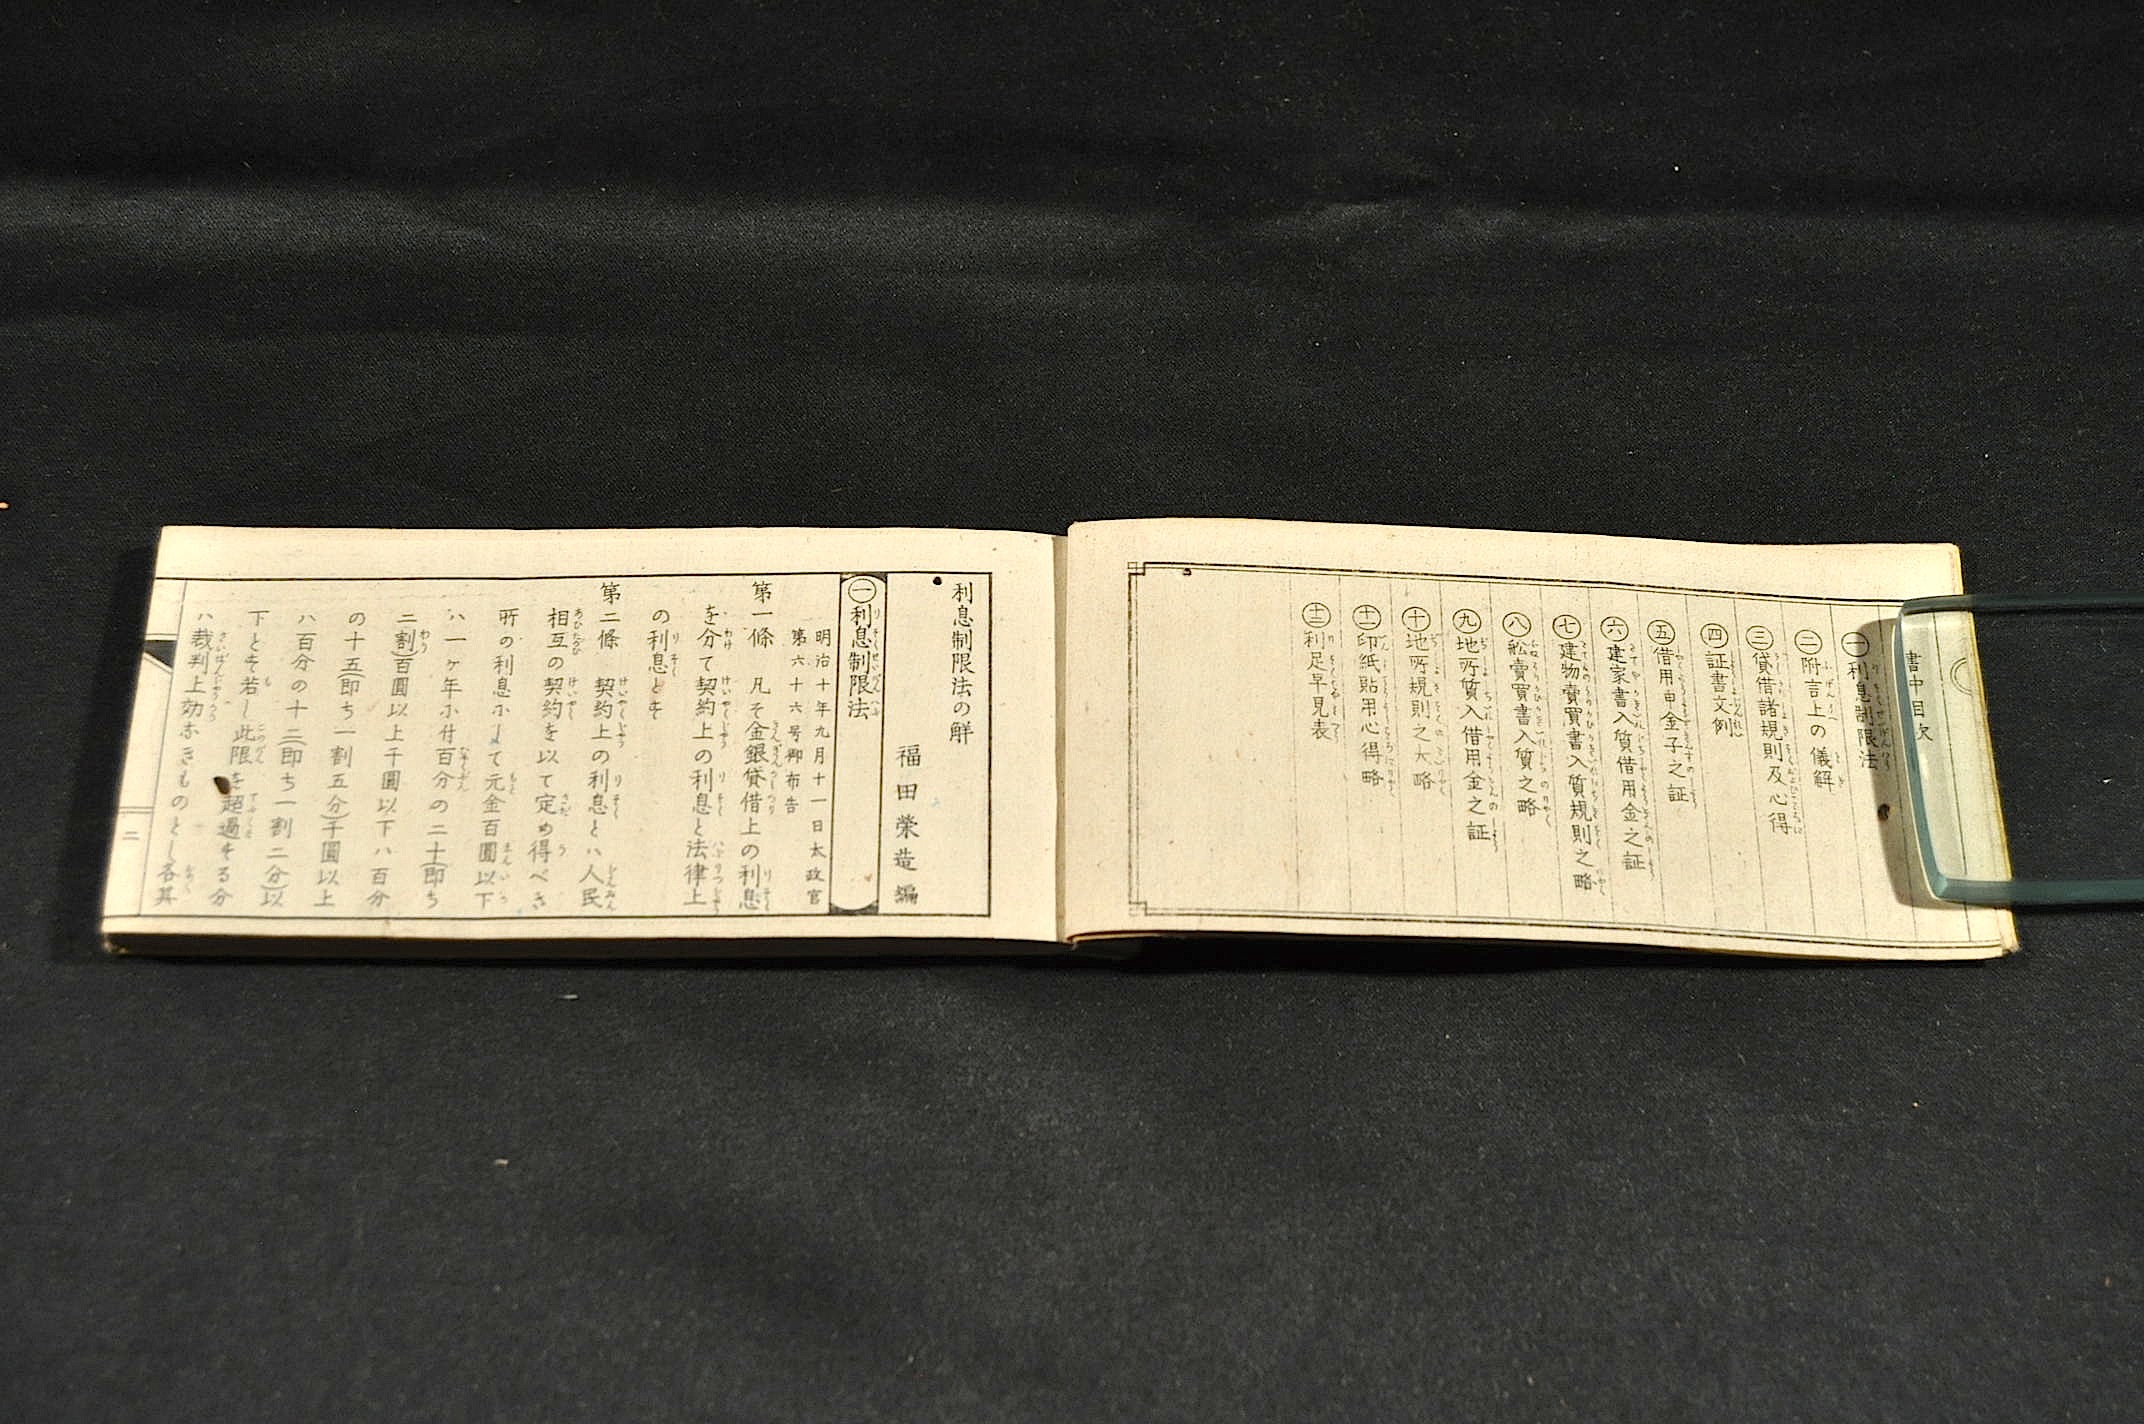 書中目次
㊀利息制限法
㊁附言上の儀解
㊂貸借諸規則及心得
㊃証書文例
㊄借用申金子之証
㊅建家書入質借用金之証
㊆建物賣買書入質規則之略
㊇舩賣買書入質之略
㊈地所質入借用金之証
㊉地所規則之大略
⑪印紙貼用心得略
⑫利足早見表
利息制限法の解
福田榮造編
㊀利息制限法
明治十年九月十一日太政官
第六十六号御布告
第一條 凡そ金銀貸借上の利息
を分て契約上の利息と法律上
の利息とす
第二條 契約上の利息とハ人民
相互の契約を以て定め得べき
所の利息にして元金百圓以下
ハ一ヶ年に付百分の二十(即ち
二割)百圓以上千圓以下ハ百分
の十五(即ち一割五分)千圓以上
ハ百分の十二(即ち一割二分)以
下とす若し此限を超過する分
ハ裁判上効なきものとし各其
二